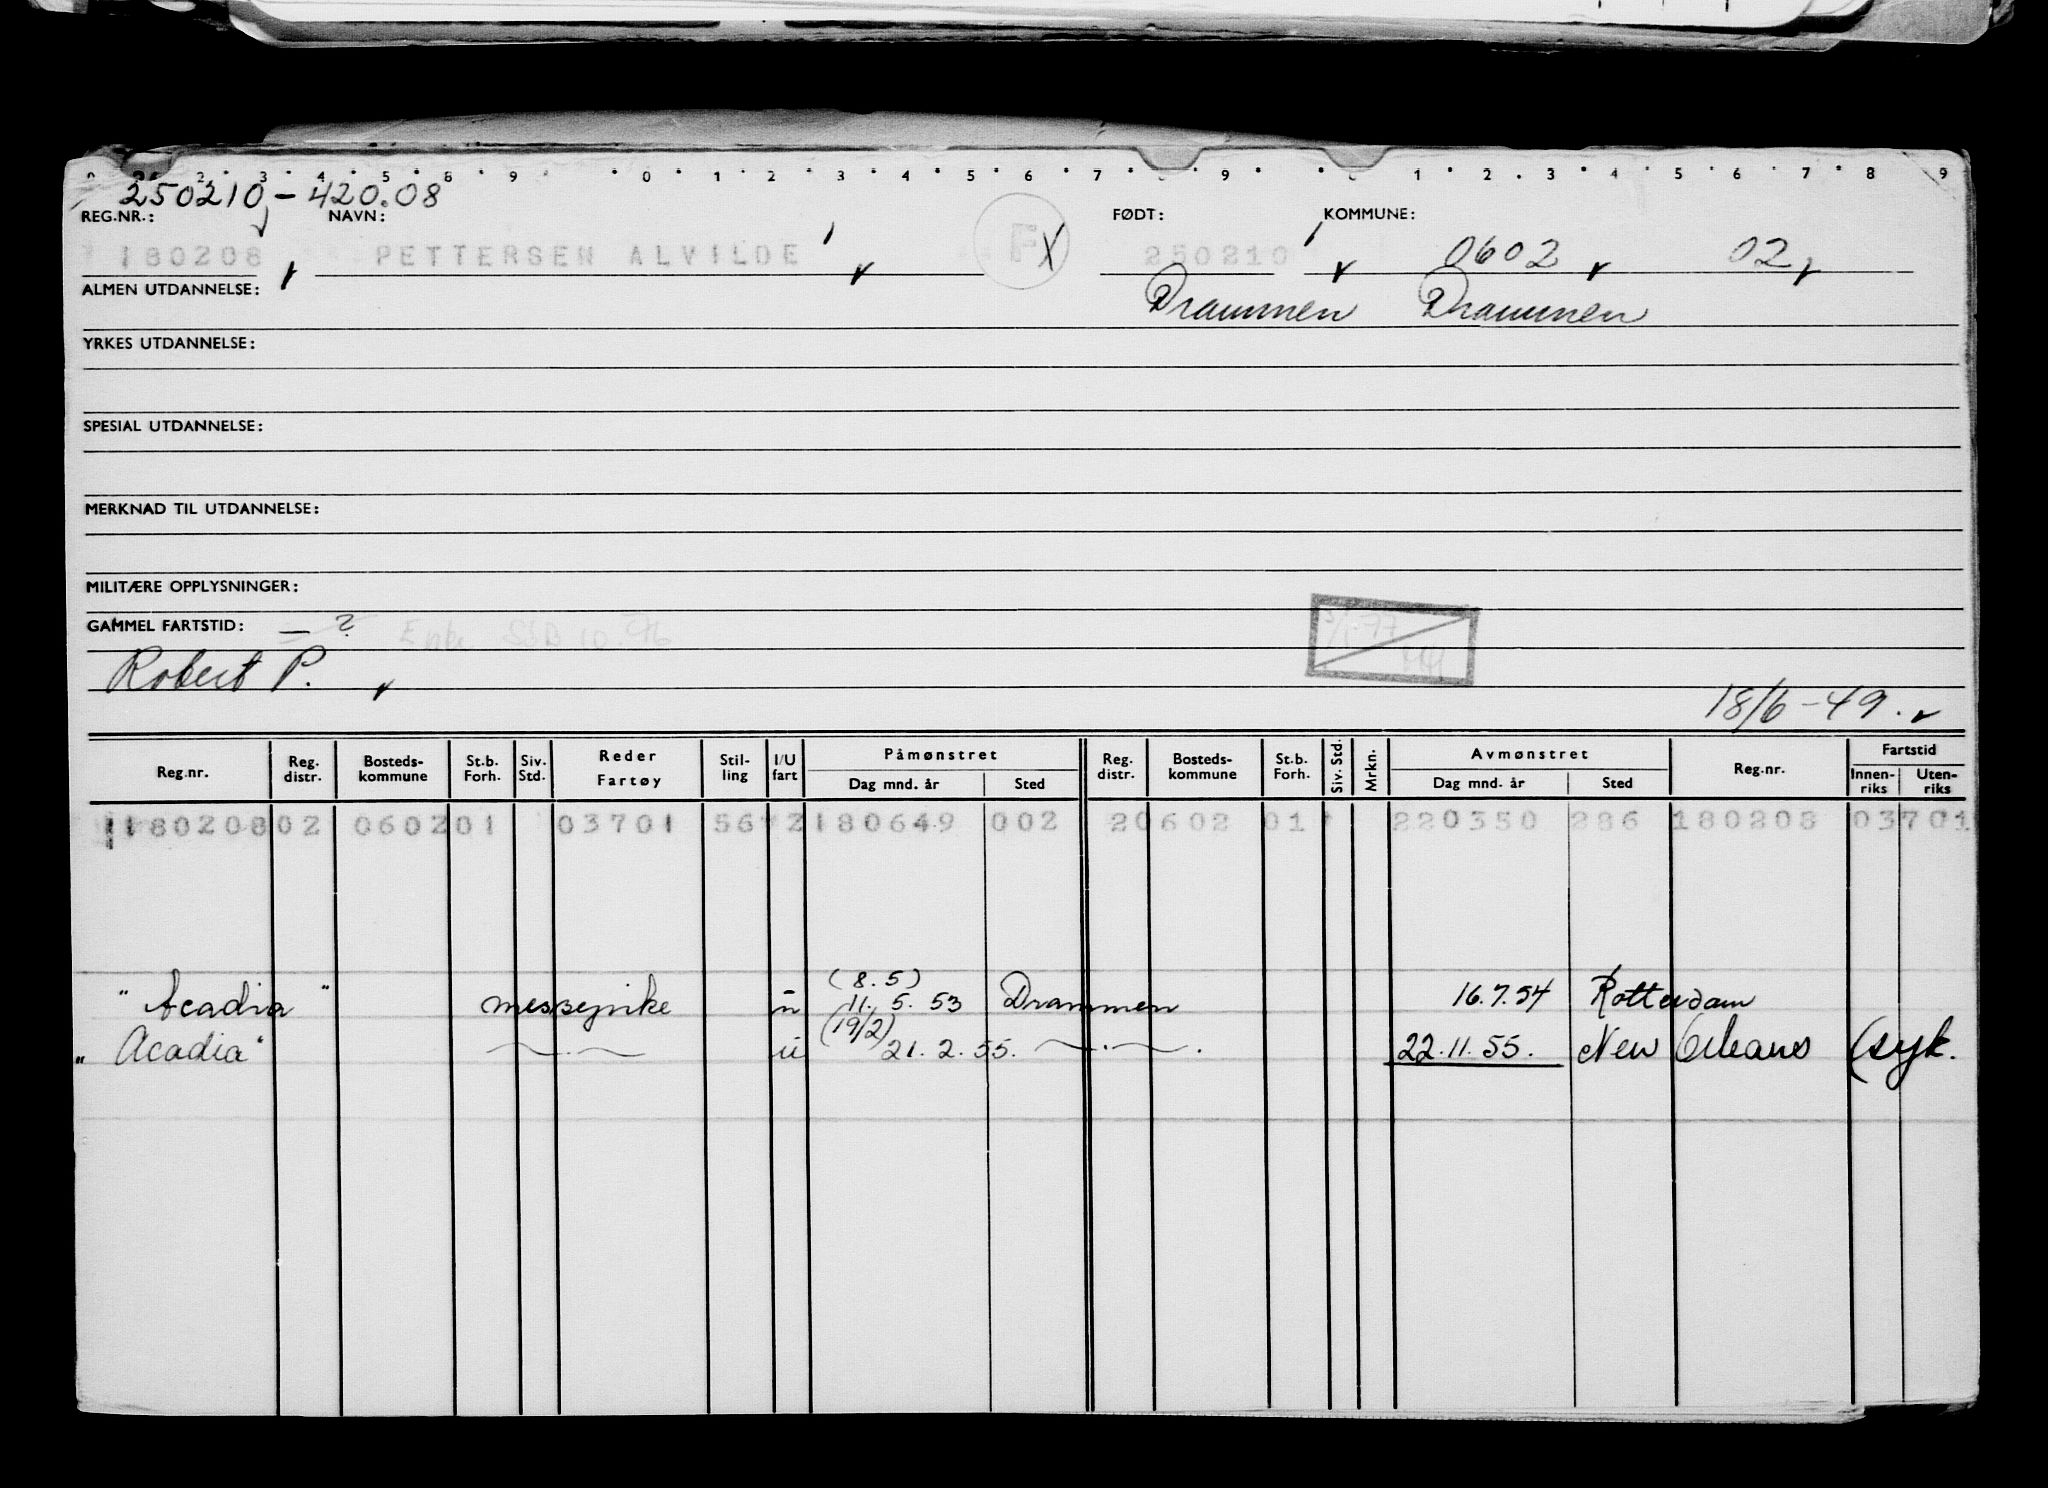 0 2 3 4 5 6 9 0 1 2 3 4 5 6 7 9 1 2 3 4 5 6 7 8 9
250210 - 420.08
REG.NR.: NAVN: FØDT: KOMMUNE:
180208 PETTERSEN ALVILDE F X 250210 0602 02
ALMEN UTDANNELSE: Drammen Drammen
YRKES UTDANNELSE:
SPESIAL UTDANNELSE:
MERKNAD TIL UTDANNELSE:
MILITÆRE OPPLYSNINGER:
GAMMEL FARTSTID: — ?
Robert P.
18/6-49.
Reg.nr. Reg. distr. Bosteds-kommune St.b. Forh. Siv. Std. Reder Fartøy Stil-ling I/U fart Påmønstret Dag mnd. år Sted Reg. distr. Bosteds-kommune St.b. Forh. Siv. Std. Mrkn. Avmønstret Dag mnd. år Sted Reg.nr. Fartstid Innen-riks Uten-riks
180208 02 0602 01 03701 56 2 180649 002 2 0602 01 220350 286 180208 03701
(8.5)
"Acadia" messepike u 11. 5. 53 Drammen 16.7.54 Rotterdam
(19/2)
"Acadia" u 21. 2. 55. 22.11.55. New Orleans (syk.